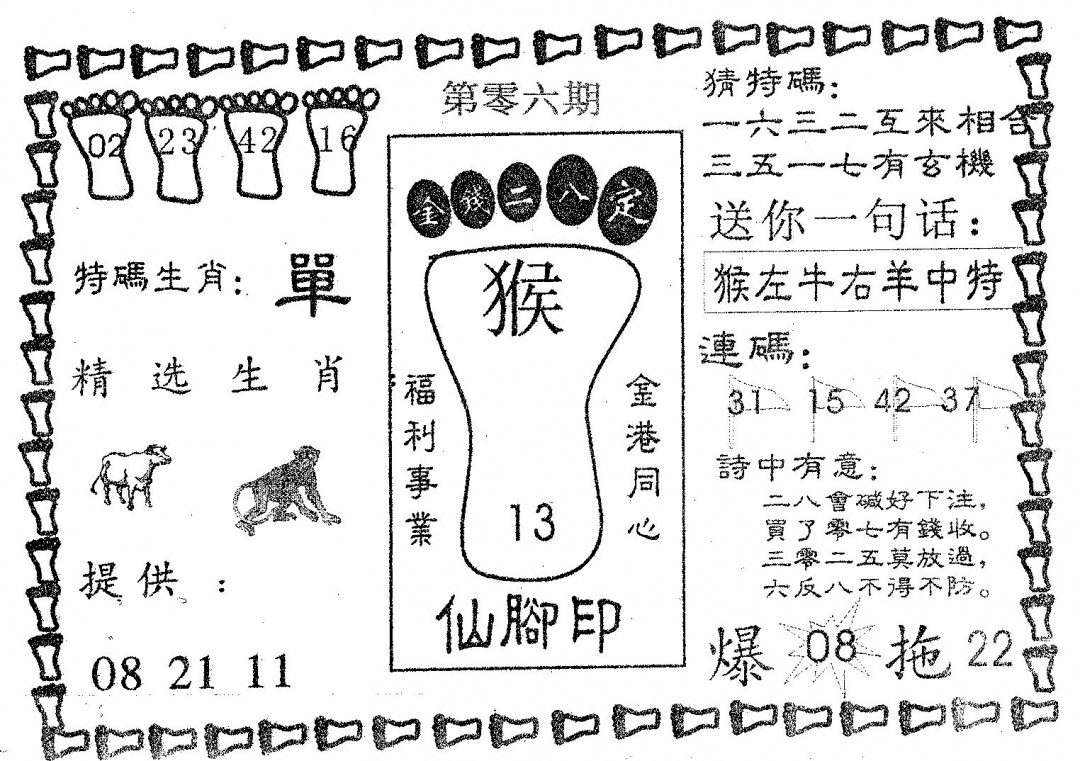 第零六期
02 23 42 16
特碼生肖：單
精选生肖
提供：
08 21 11
金錢二八定
猴
福利事業
金港同心
13
仙腳印
猜特碼：
一六三二互來相合
三五一七有玄機
送你一句话：
猴左牛右羊中特
連碼：
31 15 42 37
詩中有意：
二八會碱好下注，
買了零七有錢收。
三零二五莫放過，
六反八不得不防。
爆 08 拖 22